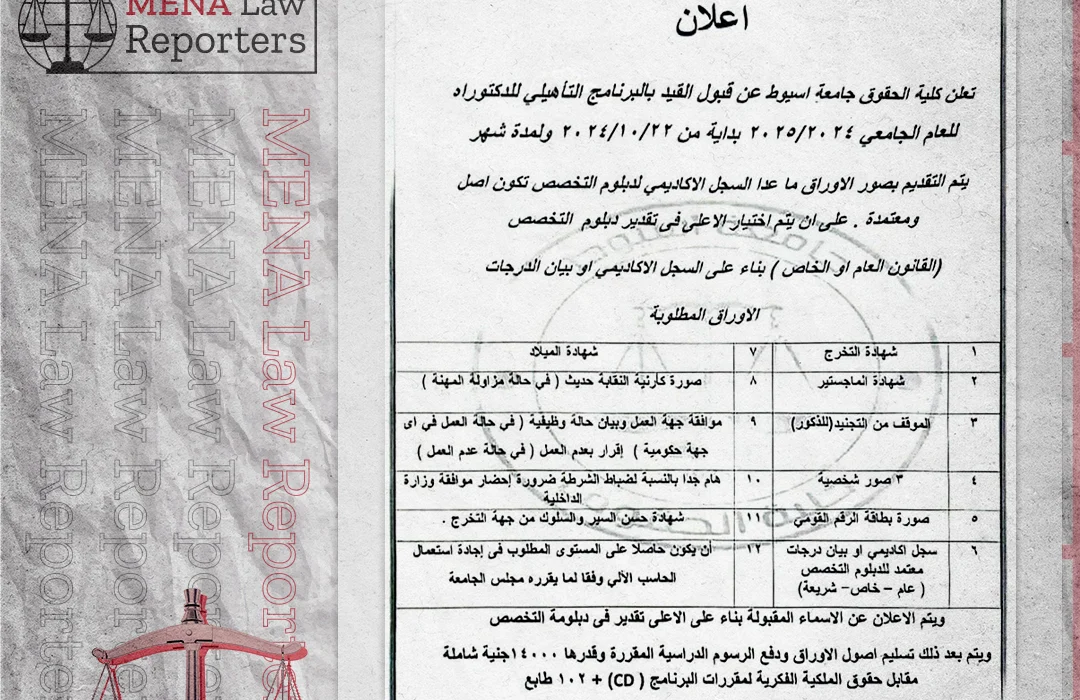 MENA Law
Reporters
MENA Law Reporters
MENA Law Reporte
MENA Law Reporte
MENA Law Reporte
اعلان
تعلن كلية الحقوق جامعة اسيوط عن قبول القيد بالبرنامج التأهيلي للدكتوراه
للعام الجامعي ٢٠٢٥/٢٠٢٤ بداية من ٢٠٢٤/١٠/٢٢ ولمدة شهر
يتم التقديم بصور الاوراق ما عدا السجل الاكاديمي لدبلوم التخصص تكون اصل
ومعتمدة . على ان يتم اختيار الاعلى فى تقدير دبلوم التخصص
(القانون العام او الخاص ) بناء على السجل الاكاديمي او بيان الدرجات
الاوراق المطلوبة
١ شهادة التخرج ٧ شهادة الميلاد
٢ شهادة الماجستير ٨ صورة كارنية النقابة حديث ( في حالة مزاولة المهنة )
٣ الموقف من التجنيد(للذكور) ٩ موافقة جهة العمل وبيان حالة وظيفية ( في حالة العمل في اى
جهة حكومية ) إقرار بعدم العمل ( في حالة عدم العمل )
٤ ٣ صور شخصية ١٠ هام جدا بالنسبة لضباط الشرطة ضرورة إحضار موافقة وزارة
الداخلية
٥ صورة بطاقة الرقم القومي ١١ شهادة حسن السير والسلوك من جهة التخرج .
٦ سجل اكاديمي او بيان درجات
معتمد للدبلوم التخصص
( عام – خاص– شريعة)
١٢ أن يكون حاصلا على المستوى المطلوب فى إجادة استعمال
الحاسب الآلي وفقا لما يقرره مجلس الجامعة
ويتم الاعلان عن الاسماء المقبولة بناء على الاعلى تقدير فى دبلومة التخصص
ويتم بعد ذلك تسليم اصول الاوراق ودفع الرسوم الدراسية المقررة وقدرها ١٤٠٠٠جنية شاملة
مقابل حقوق الملكية الفكرية لمقررات البرنامج ( CD) + ١٠٢ طابع